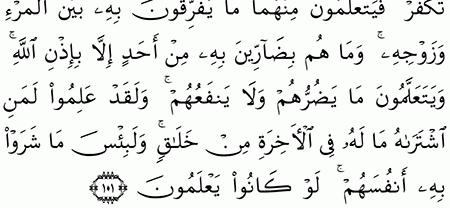 تَكْفُرْ ۖ فَيَتَعَلَّمُونَ مِنْهُمَا مَا يُفَرِّقُونَ بِهِۦ بَيْنَ ٱلْمَرْءِ
وَزَوْجِهِۦ ۚ وَمَا هُم بِضَآرِّينَ بِهِۦ مِنْ أَحَدٍ إِلَّا بِإِذْنِ ٱللَّهِ ۚ
وَيَتَعَلَّمُونَ مَا يَضُرُّهُمْ وَلَا يَنفَعُهُمْ ۚ وَلَقَدْ عَلِمُوا۟ لَمَنِ
ٱشْتَرَىٰهُ مَا لَهُۥ فِى ٱلْـَٔاخِرَةِ مِنْ خَلَـٰقٍ ۚ وَلَبِئْسَ مَا شَرَوْا۟
بِهِۦٓ أَنفُسَهُمْ ۚ لَوْ كَانُوا۟ يَعْلَمُونَ ﴿١٠١﴾